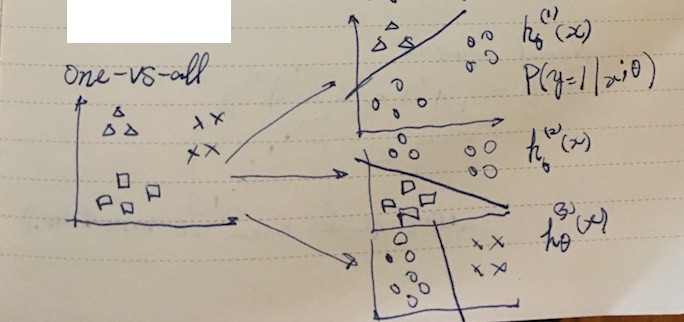 one-vs-all
h_θ^(1)(x)
P(y=1|x;θ)
h_θ^(2)(x)
h_θ^(3)(x)